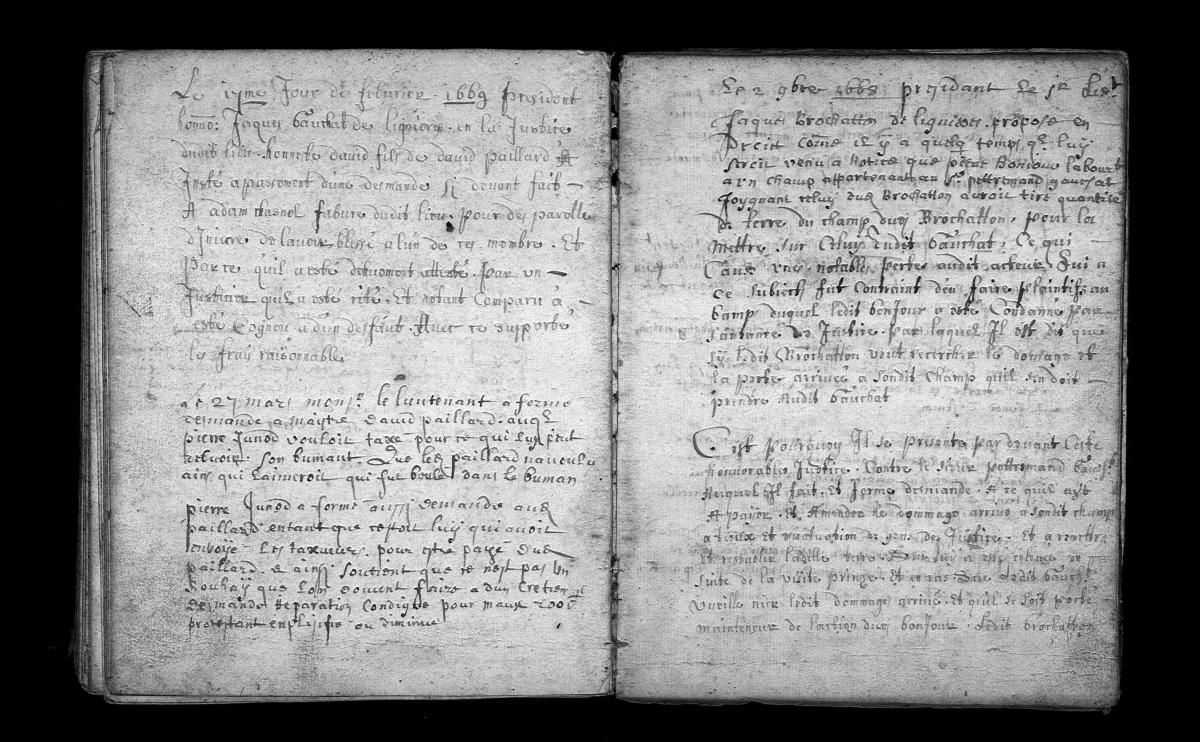 Le 17me Jour de febvrier 1669 president
honno: Jaques bauchat de lignieres en la Justice
dudit lieu. honneste david fils de david paillard A
Insté a passement d'une demande si devant fait
A adam chasnel fabvre dudit lieu pour des parolle
d'Iniure de lavoir blessé a l'un de ces membre. Et
Parce qu'il a esté dehuement attesté Par un
Justicier qu'il a esté cité, Et notant Comparu a
esté Cognou a d'un deffaut. Avec ce supporte
le frais raisonnable
Le 27 mars mons.r le lieutenant a formé
demande a maistre david paillard.
pierre Junod vouloit taxe pour ce qui luy peut
recevoir. Son bumant. Que led paillard
ains qui laimeroit qui fut boule dans le buman
pierre Junod a formé aussi demande aud
paillard entant que cestoit luy qui avoit
envoye les taxeurs. pour estre payé dud
paillard. & ainsi soutient que ce n'est pas un
souhait que l'on doivent faire a d'un Cretien il
demande Reparation Condigne pour maux 200
protestant enplifie ou diminue
Le 2 9bre 1668 presidant Le sr Lieut
Jaques Brochatton de lignieres. propose en
Droit come il y a quelq temps q. luy
seroit venu a notice que petter Bonjour labourt
a un champ appartenant au Sr pettremand gauchat
Joygnant celuy dud Brochatton auroit tiré quantité
de terre du champ dud Brochatton, pour la
mettre sur Celuy dudit bauchat, Ce qui
Cause une notable perte audit acteur. Qui a
ce subiect fut Contraint d'en faire plaintif au
bamp duquel ledit bonjour a esté Condamné Par
santance de Justice. Par laquel Il est dit que
sy ledit Brochatton veut recercher le domage et
la perte arrivée a sondit Champ quil s'en doit
prendre Audit bauchat
C'est Pourquoy Il se presente par devant Ceste
honnorable Justice. Contre le sieur pettremand bauch.t
Auquel Il fait, Et forme demande. A ce quil ayt
A payer. Et Amender le dommage arrivé a sondit champ
a tieux et evaluation de gens de Justice. Et a remettre
Et restablir laditte terre
suite de la visite prinze. Et en cas que ledit bauch.t
Vueille nier ledit dommage arrivé. et quil se soit porté
mainteneur de laction dud bonjour. ledit brochatton